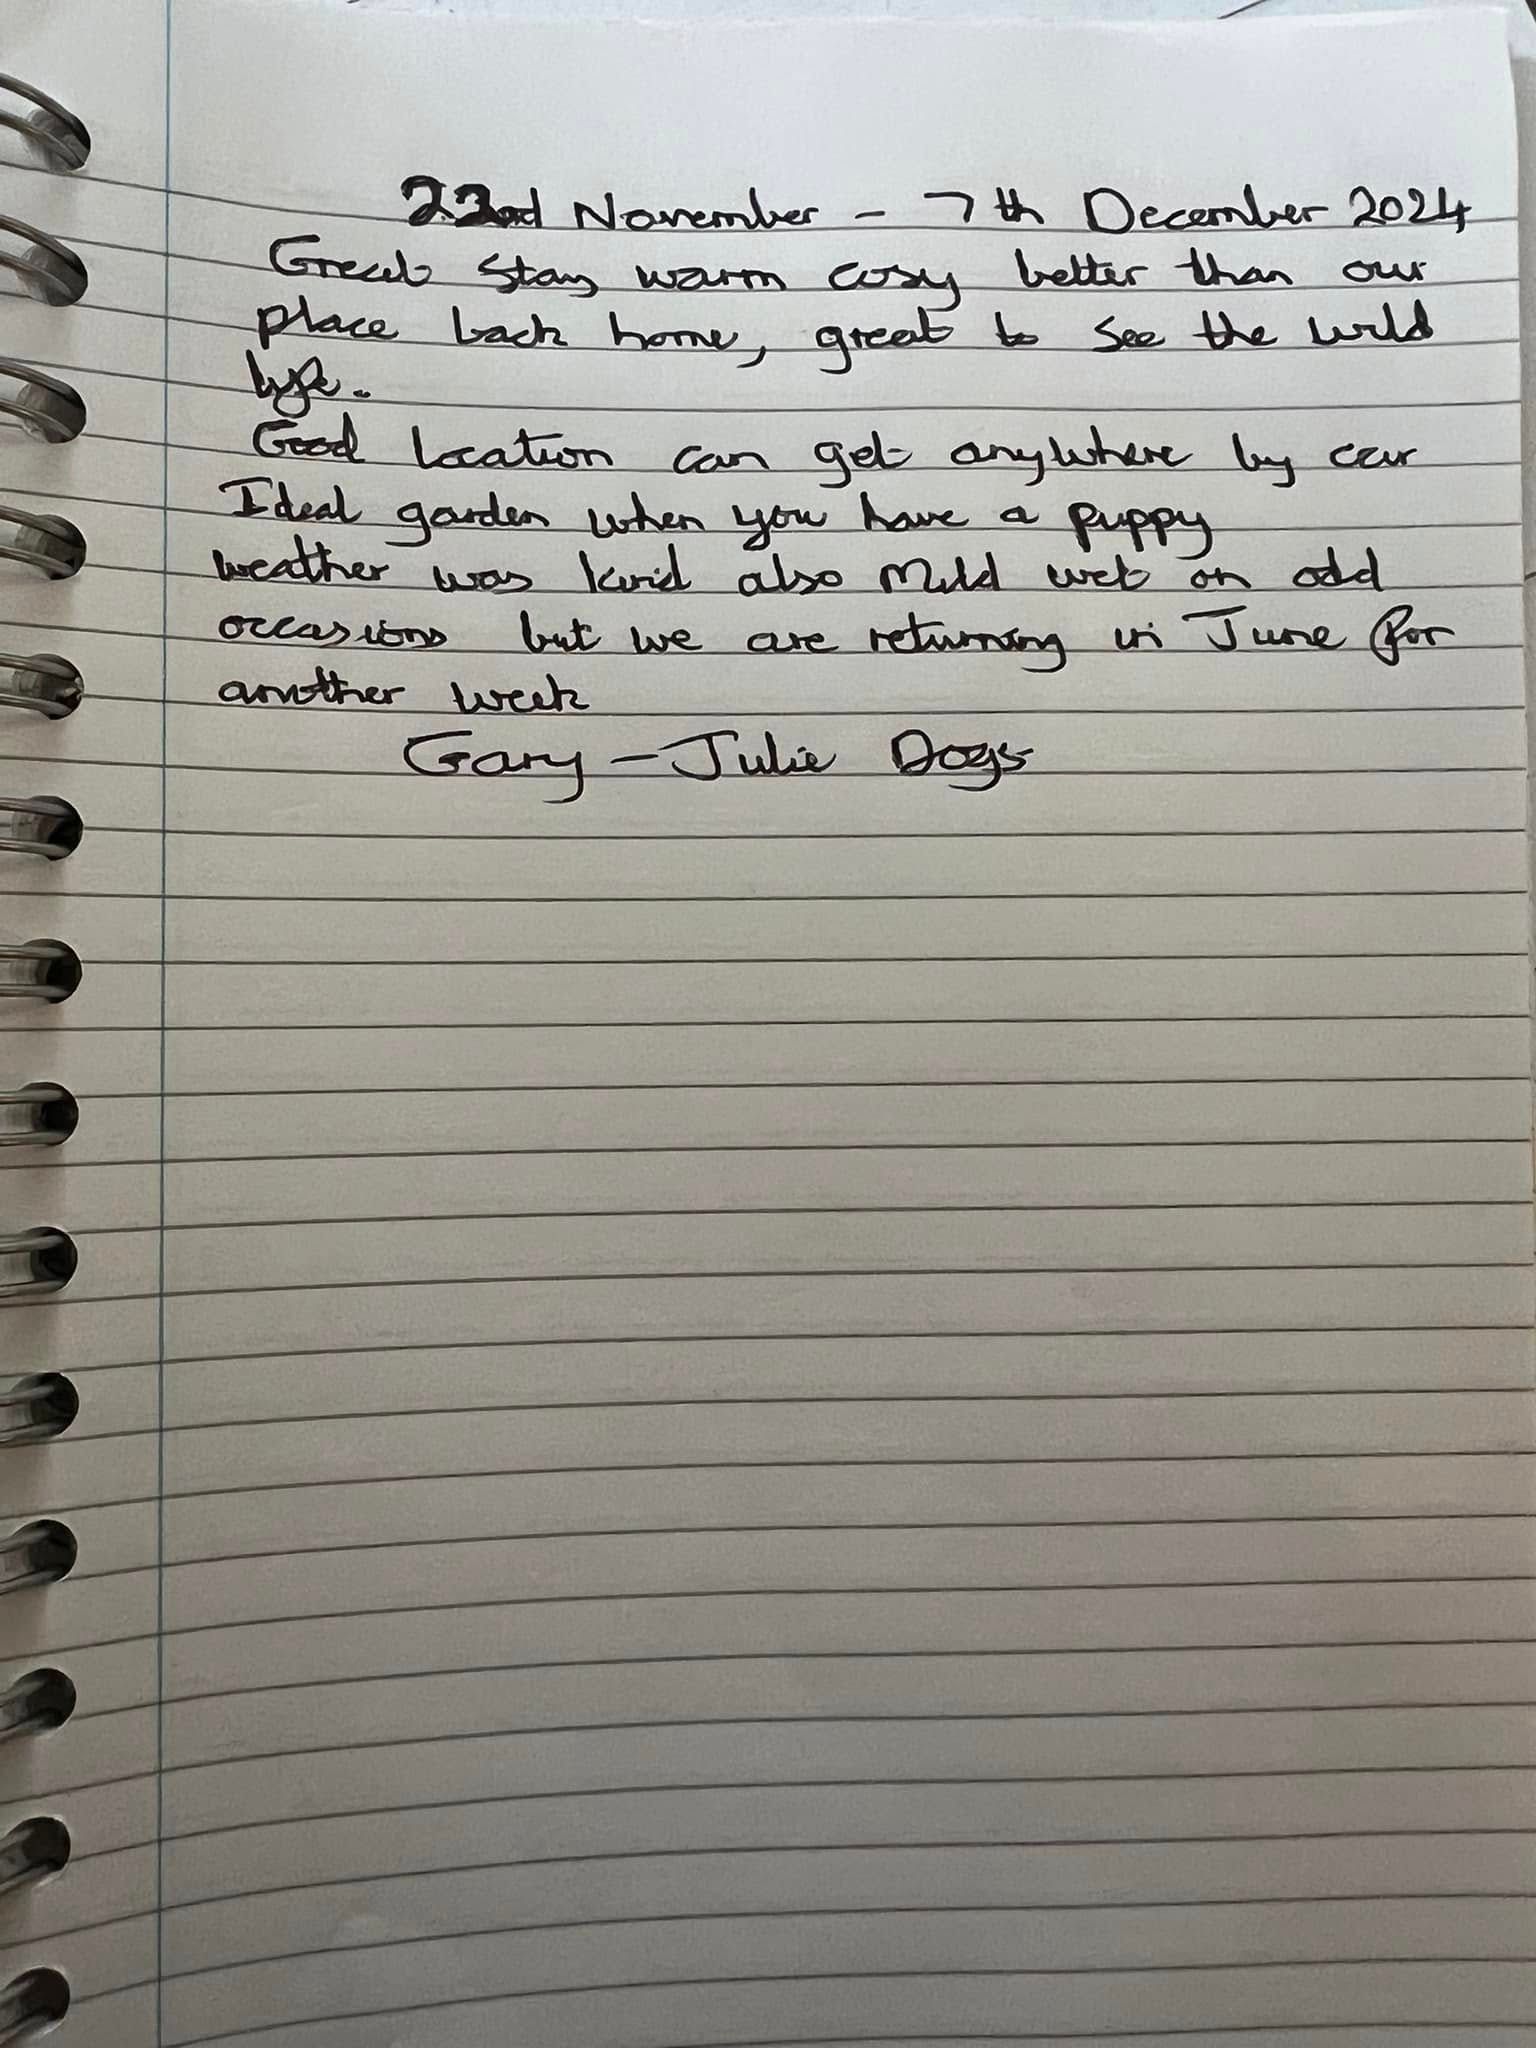 22nd November - 7th December 2024
Great stay warm cosy better than our
place back home, great to see the wild
life.
Good location can get anywhere by car
Ideal garden when you have a puppy
weather was kind also mild wet on odd
occasions but we are returning in June for
another week
Gary - Julie Dogs